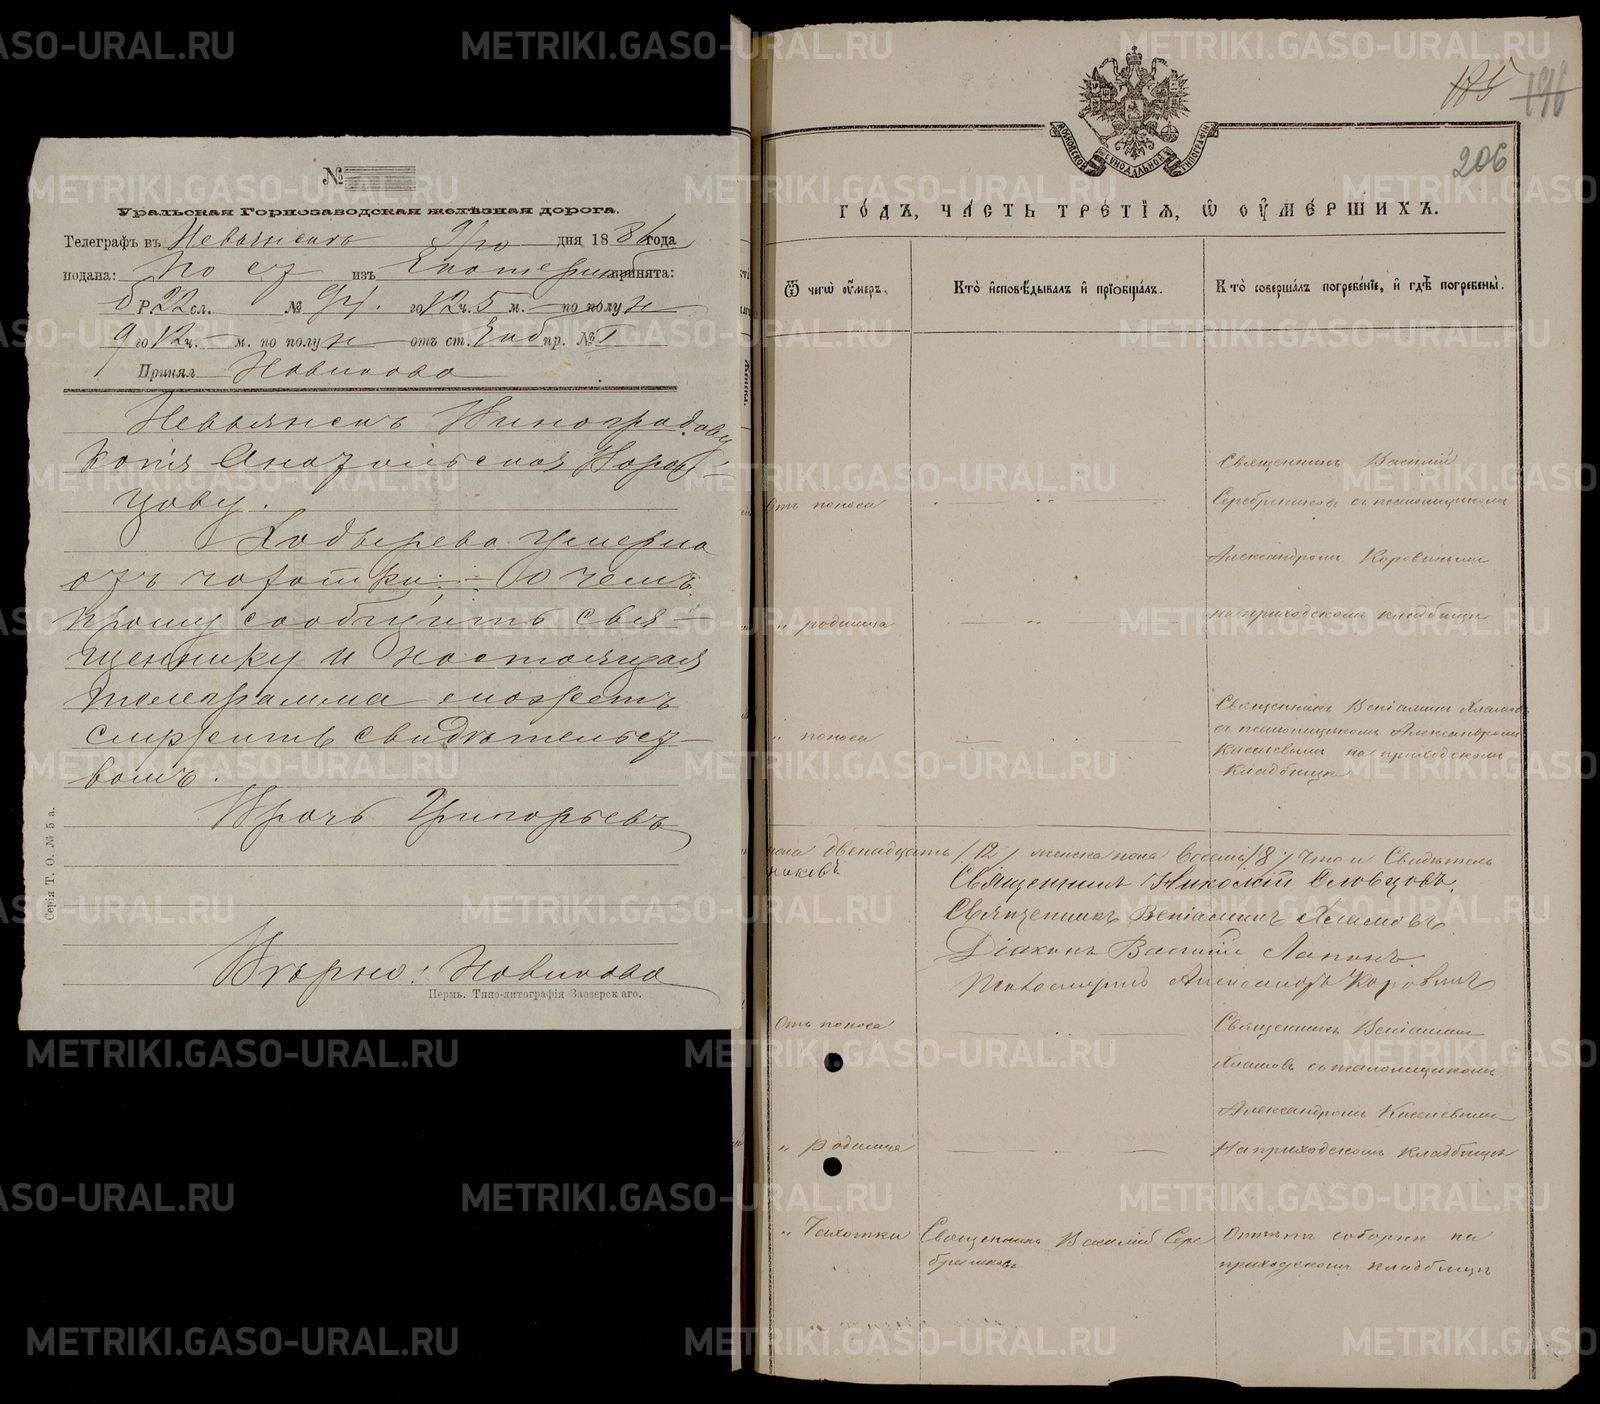 №
Уральская Горнозаводская желѣзная дорога.
Телеграфъ въ Невьянскъ 9/10 дня 1886 года
подана: изъ Екатеринб принята:
Р. 22 сл. № 94. го 12 ч. 5 м. по полун
9 го 12 ч. м. по полун отъ ст. Екб пр. № 1
Принял Новикова
Невьянскъ Виноградову
Копія Анатольская Воров-
цову.
Ходырева умерла
отъ чахотки. О чемъ
прошу сообщить свя-
щеннику и настоящая
телеграмма можетъ
служить свидѣтельст-
вомъ.
Врачъ Григорьевъ
Вѣрно: Новикова
Пермь. Типо-литографія Заозерскаго.
Серія Т. О. № 5 а.
МОСКОВСКОЙ СѴНОДАЛЬНОЙ ТИПОГРАФІИ
185 196
206
ГОДЪ, ЧАСТЬ ТРЕТІЯ, Ѡ ОУМЕРШИХЪ.
Ѿ чегѡ оумеръ.
Кто исповѣдывалъ и пріобщалъ.
Кто совершалъ погребеніе, и гдѣ погребены.
Отъ поноса
Священникъ Василій
Серебрениковъ съ псаломщикомъ
Александромъ Коровинымъ
на приходскомъ кладбищѣ
„ родимца
„ поноса
Священникъ Веніаминъ Хламовъ
съ псаломщикомъ Александромъ
Кисилевымъ на приходскомъ
кладбищѣ
пола двенадцать /12/ женска пола восемь /8/ Что и Свидѣтель
Священникъ Николай Словцовъ.
Священникъ Веніаминъ Хламовъ
Діаконъ Василій Лапинъ.
Псаломщикъ Александръ Коровинъ
Отъ поноса
Священникъ Веніаминъ
Хламовъ съ псаломщикомъ
Александромъ Кисилевымъ
На приходскомъ кладбищѣ
„ родимца
„ Чахотки
Священникъ Василій Сере
брениковъ
Отпѣтъ соборнѣ на
приходскомъ кладбищѣ
METRIKI.GASO-URAL.RU